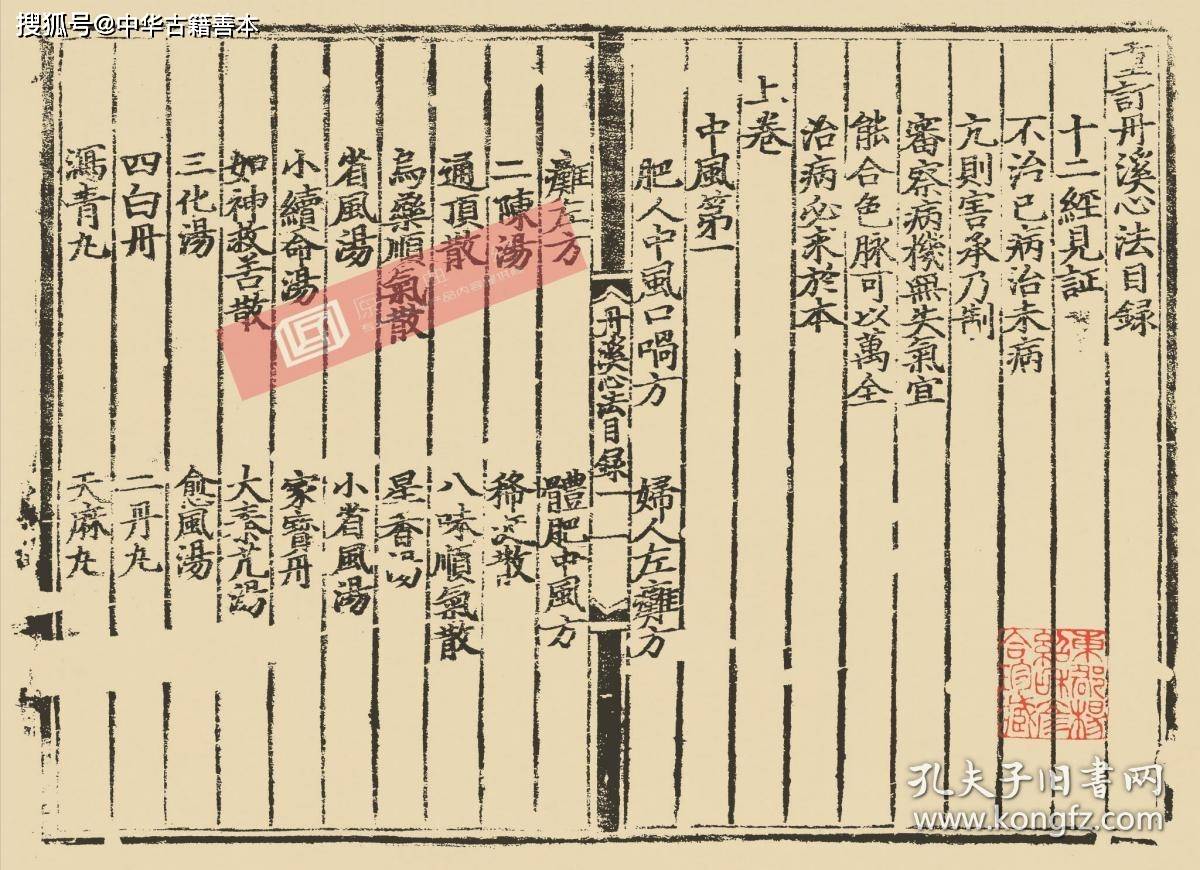 搜狐号@中华古籍善本
重訂丹溪心法目録
十二經見証
不治已病治未病
亢則害承乃制
審察病機無失氣宜
能合色脉可以萬全
治病必求於本
上卷
中風第一
肥人中風口喎方 婦人左癱方
丹溪心法目録 一
癱左方 體肥中風方
二陳湯 稀涎散
通頂散 八味順氣散
烏藥順氣散 星香湯
省風湯 小省風湯
小續命湯 家寶丹
如神救苦散 大秦艽湯
三化湯 愈風湯
四白丹 二丹丸
瀉青丸 天麻丸
東郡楊
紹和彦
合珍藏
孔夫子旧书网
www.kongfz.com